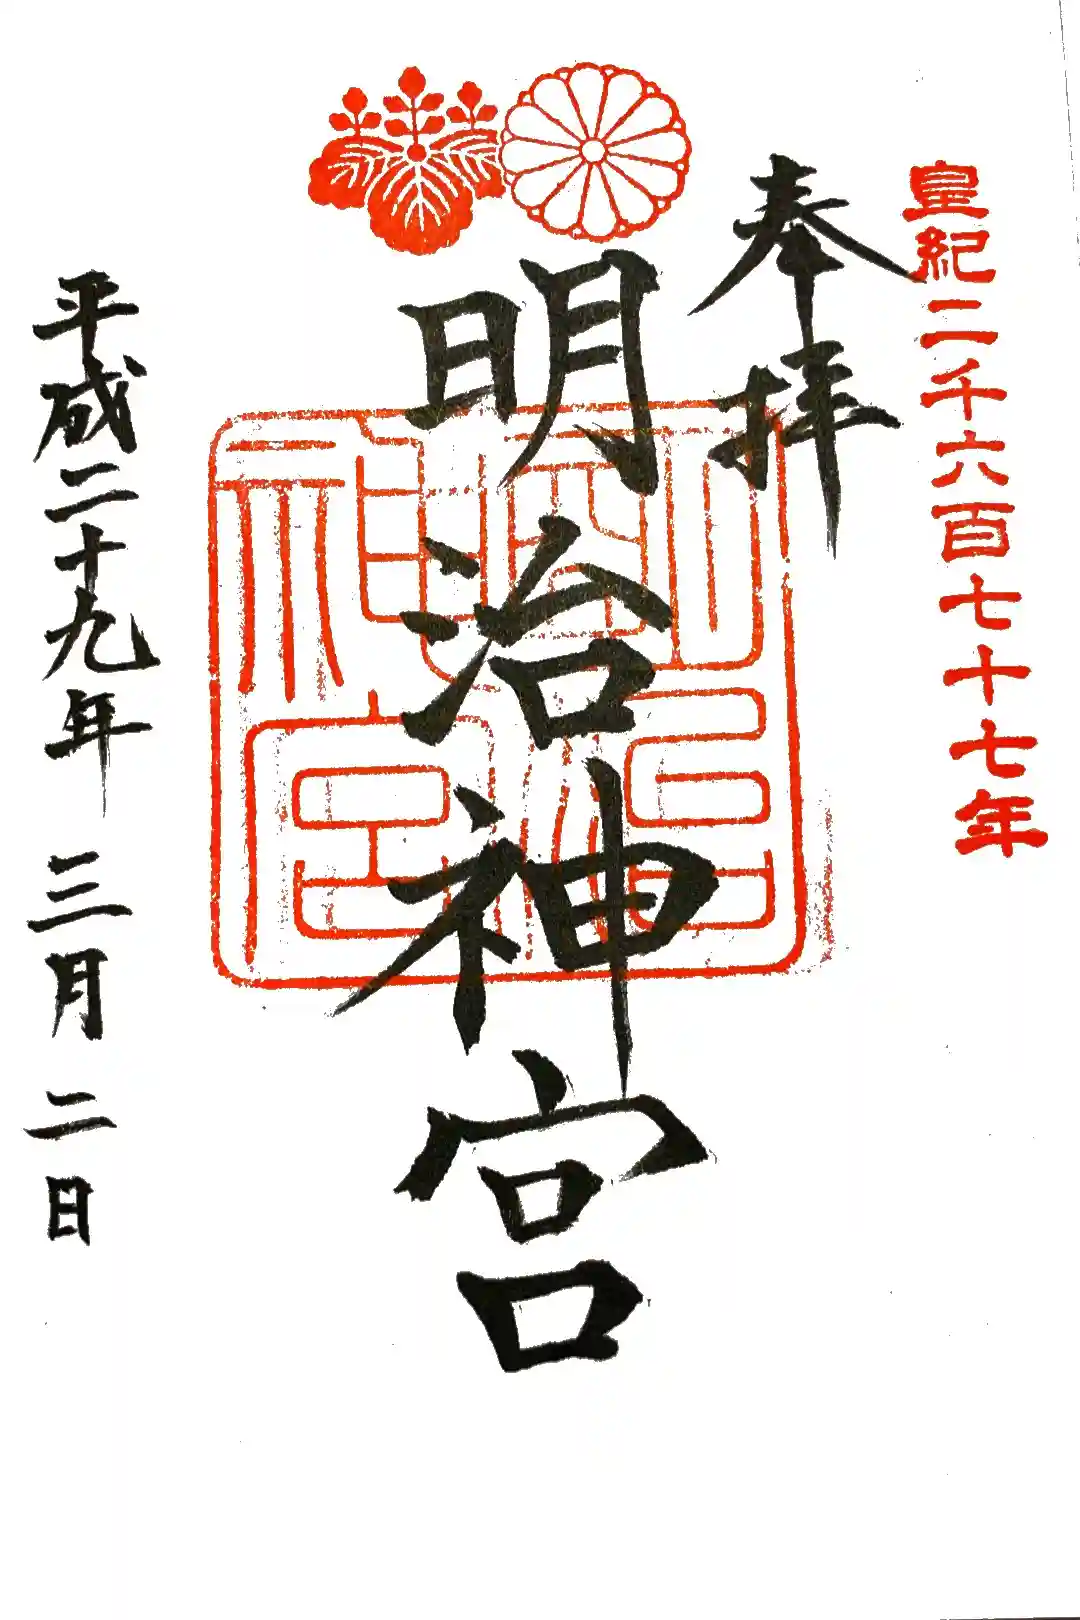 皇紀二千六百七十七年
奉拝
明治神宮
平成二十九年三月二日